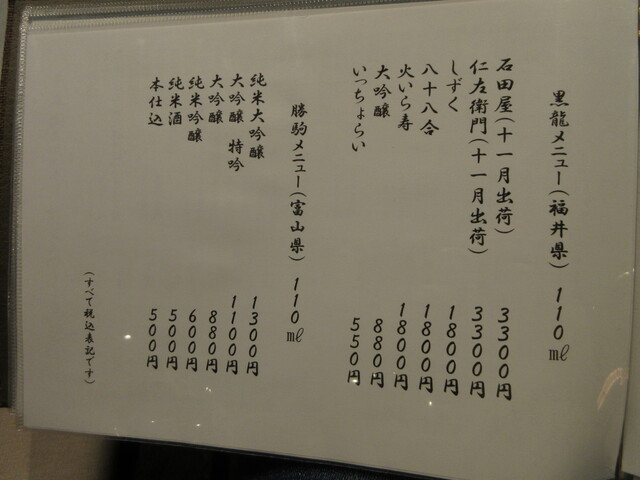 黒龍メニュー(福井県) 110㎖
石田屋(十一月出荷) 3300円
仁左衛門(十一月出荷) 3300円
しずく 1800円
八十八合 1800円
火いら寿 1800円
大吟醸 880円
いっちょらい 550円
勝駒メニュー(富山県) 110㎖
純米大吟醸 1300円
大吟醸 特吟 1100円
大吟醸 880円
純米吟醸 600円
純米酒 500円
本仕込 500円
(すべて税込表記です)